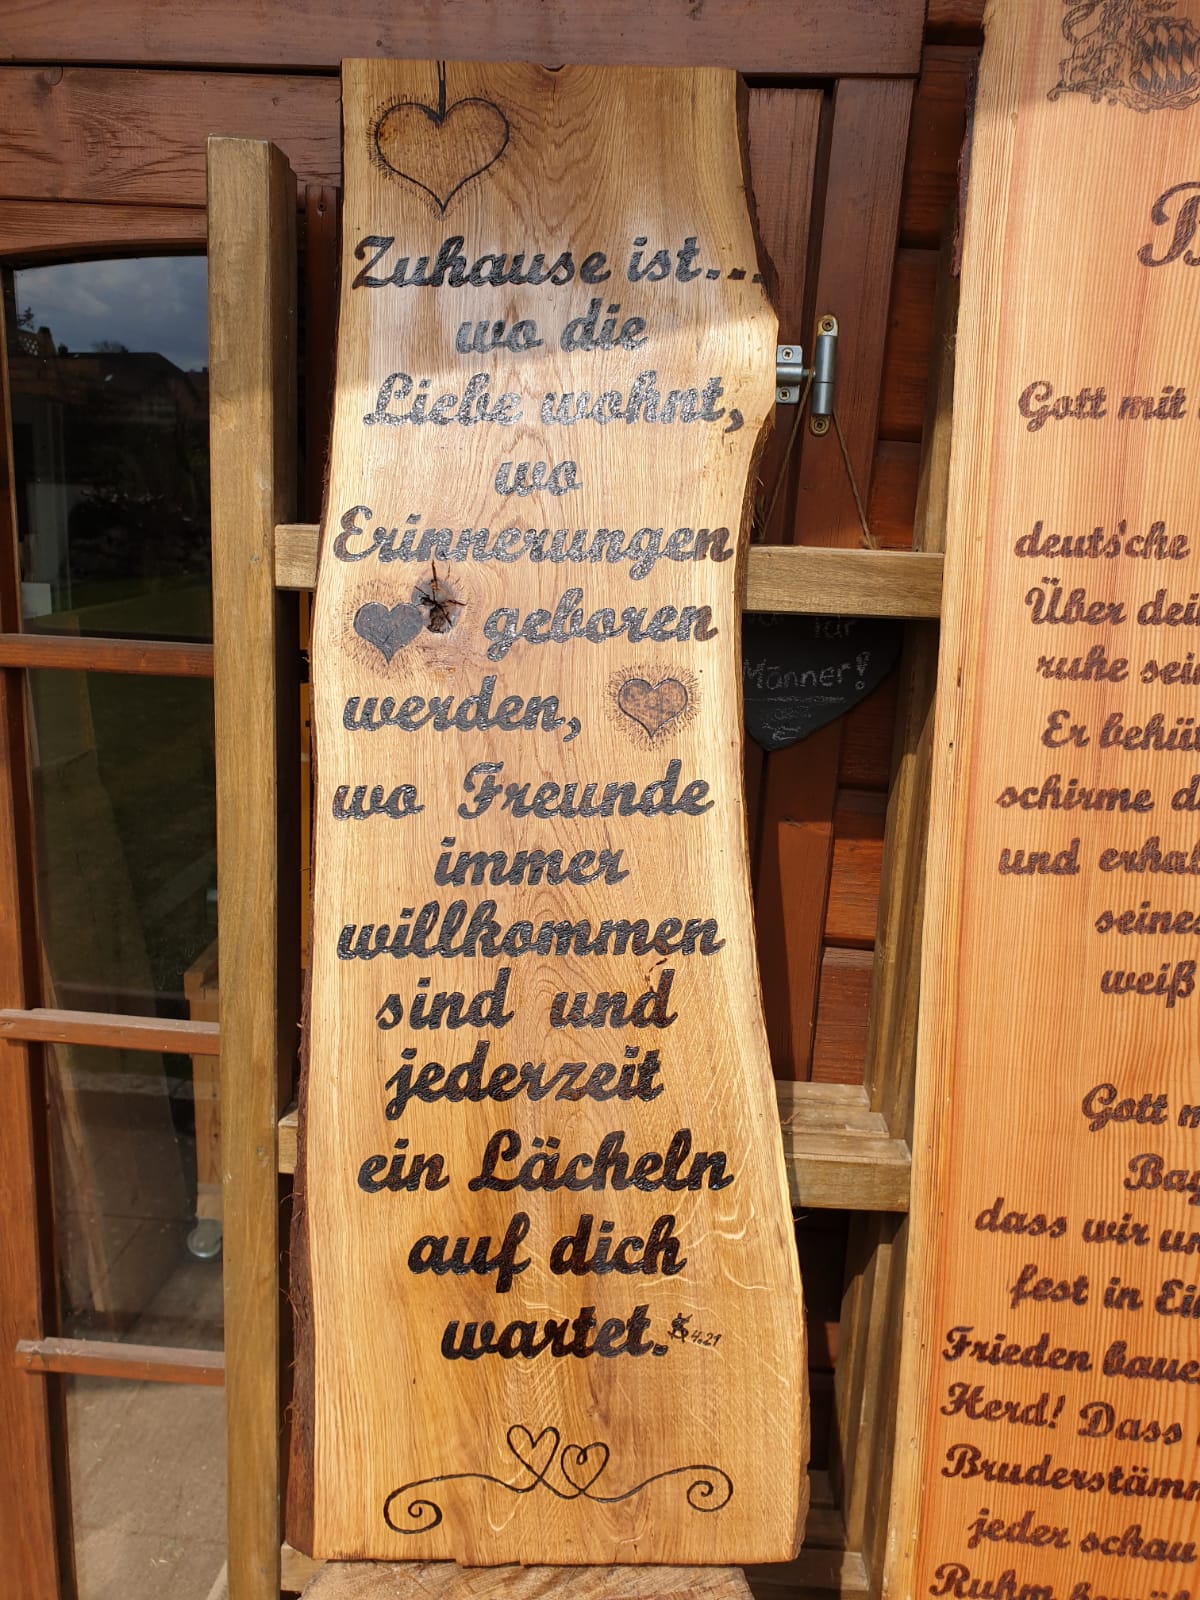 Zuhause ist...
wo die
Liebe wohnt,
wo
Erinnerungen
geboren
werden,
wo Freunde
immer
willkommen
sind und
jederzeit
ein Lächeln
auf dich
wartet.
4.21
für
Männer!
Gott mit
deutsche
Über
ruhe
Er
schirme
und
weiß
Gott
dass wir
fest in
Frieden
Herd! Dass
jeder
Ruhm